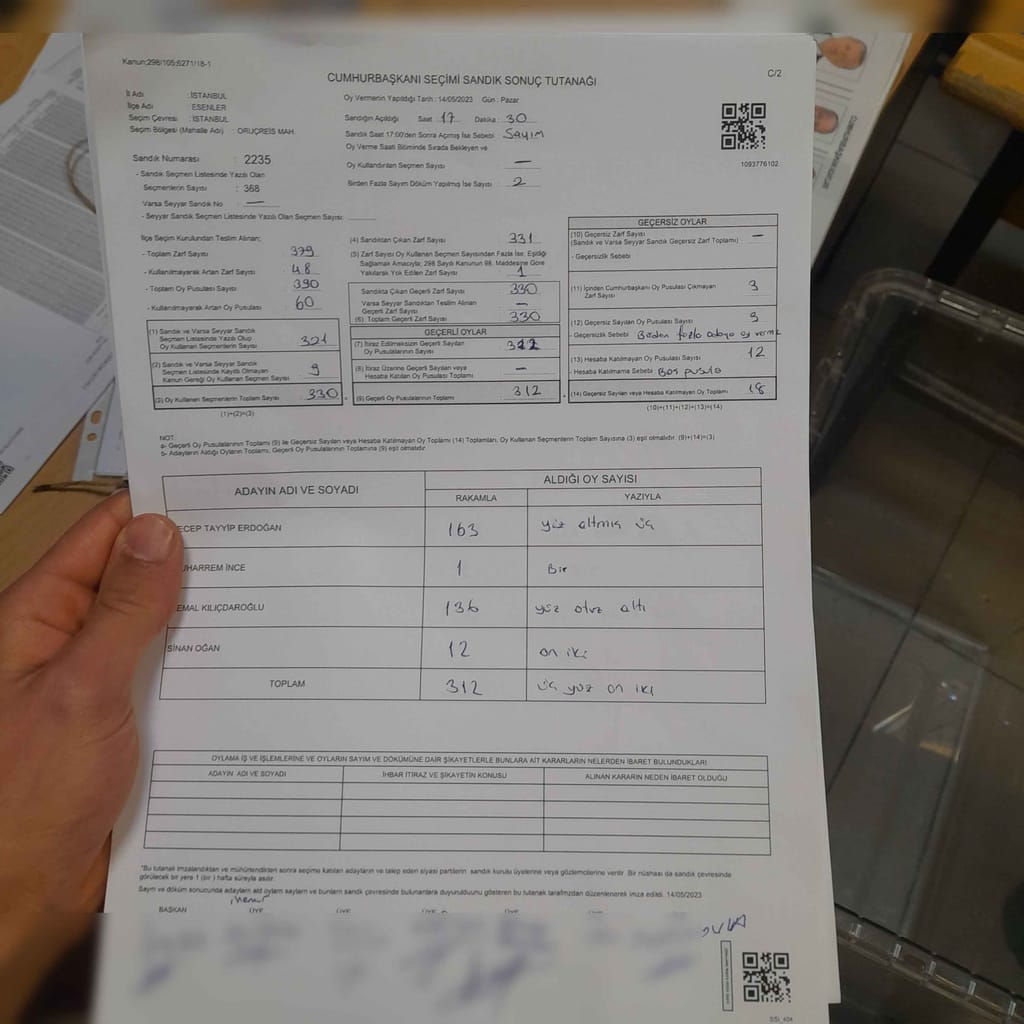 Kanun:298/105;6271/18-1
CUMHURBAŞKANI SEÇİMİ SANDIK SONUÇ TUTANAĞI
C/2
İl Adı : İSTANBUL
İlçe Adı : ESENLER
Seçim Çevresi : İSTANBUL
Seçim Bölgesi (Mahalle Adı) : ORUÇREİS MAH.
Sandık Numarası : 2235
- Sandık Seçmen Listesinde Yazılı Olan
Seçmenlerin Sayısı : 368
Varsa Seyyar Sandık No : —
- Seyyar Sandık Seçmen Listesinde Yazılı Olan Seçmen Sayısı:
Oy Vermenin Yapıldığı Tarih : 14/05/2023 Gün : Pazar
Sandığın Açıldığı Saat : 17 Dakika : 30
Sandık Saat 17:00'den Sonra Açılmış İse Sebebi : Sayım
Oy Verme Saati Bitiminde Sırada Bekleyen ve
Oy Kullandırılan Seçmen Sayısı —
Birden Fazla Sayım Döküm Yapılmış İse Sayısı : 2
1093776102
İlçe Seçim Kurulundan Teslim Alınan;
- Toplam Zarf Sayısı : 379
- Kullanılmayarak Artan Zarf Sayısı : 48
- Toplam Oy Pusulası Sayısı : 390
- Kullanılmayarak Artan Oy Pusulası : 60
(1) Sandık ve Varsa Seyyar Sandık
Seçmen Listesinde Yazılı Olup
Oy Kullanan Seçmenlerin Sayısı 321
(2) Sandık ve Varsa Seyyar Sandık
Seçmen Listesinde Kayıtlı Olmayan
Kanun Gereği Oy Kullanan Seçmen Sayısı 9
(3) Oy Kullanan Seçmenlerin Toplam Sayısı 330
(1)+(2)=(3)
(4) Sandıktan Çıkan Zarf Sayısı 331
(5) Zarf Sayısı Oy Kullanan Seçmen Sayısından Fazla İse, Eşitliği
Sağlamak Amacıyla, 298 Sayılı Kanunun 98. Maddesine Göre
Yakılarak Yok Edilen Zarf Sayısı 1
Sandıkta Çıkan Geçerli Zarf Sayısı 330
Varsa Seyyar Sandıktan Teslim Alınan
Geçerli Zarf Sayısı —
(6) Toplam Geçerli Zarf Sayısı 330
GEÇERLİ OYLAR
(7) İtiraz Edilmeksizin Geçerli Sayılan
Oy Pusulalarının Sayısı 312
(8) İtiraz Üzerine Geçerli Sayılan veya
Hesaba Katılan Oy Pusulası Toplamı —
(9) Geçerli Oy Pusulalarının Toplamı 312
GEÇERSİZ OYLAR
(10) Geçersiz Zarf Sayısı —
(Sandık ve Varsa Seyyar Sandık Geçersiz Zarf Toplamı)
- Geçersizlik Sebebi
(11) İçinden Cumhurbaşkanı Oy Pusulası Çıkmayan
Zarf Sayısı 3
(12) Geçersiz Sayılan Oy Pusulası Sayısı 3
- Geçersizlik Sebebi Birden fazla adaya oy verme
(13) Hesaba Katılmayan Oy Pusulası Sayısı 12
- Hesaba Katılmama Sebebi Boş pusula
(14) Geçersiz Sayılan veya Hesaba Katılmayan Oy Toplamı 18
(10)+(11)+(12)+(13)=(14)
NOT:
a- Geçerli Oy Pusulalarının Toplamı (9) ile Geçersiz Sayılan veya Hesaba Katılmayan Oy Toplamı (14) Toplamları, Oy Kullanan Seçmenlerin Toplam Sayısına (3) eşit olmalıdır. (9)+(14)=(3)
b- Adayların Aldığı Oyların Toplamı, Geçerli Oy Pusulalarının Toplamına (9) eşit olmalıdır.
ADAYIN ADI VE SOYADI ALDIĞI OY SAYISI
RAKAMLA YAZIYLA
ECEP TAYYİP ERDOĞAN 163 yüz altmış üç
UHARREM İNCE 1 Bir
EMAL KILIÇDAROĞLU 136 yüz otuz altı
SİNAN OĞAN 12 on iki
TOPLAM 312 üç yüz on iki
OYLAMA İŞ VE İŞLEMLERİNE VE OYLARIN SAYIM VE DÖKÜMÜNE DAİR ŞİKAYETLERLE BUNLARA AİT KARARLARIN NELERDEN İBARET BULUNDUKLARI
ADAYIN ADI VE SOYADI İHBAR İTİRAZ VE ŞİKAYETİN KONUSU ALINAN KARARIN NEDEN İBARET OLDUĞU
"Bu tutanak imzalandıktan ve mühürlendikten sonra seçime katılan adayların ve talep eden siyasi partilerin sandık kurulu üyelerine veya gözlemcilerine verilir. Bir nüshası da sandık çevresinde
görülecek bir yere 1 (bir) hafta süreyle asılır.
Sayım ve döküm sonucunda adayların ait oldukları oy sayısını ve bunların sandık çevresinde bulunanlara duyurulduğunu gösteren bu tutanak tarafımızdan düzenlenerek imza edildi. 14/05/2023
Memur
BAŞKAN ÜYE ÜYE ÜYE ÜYE